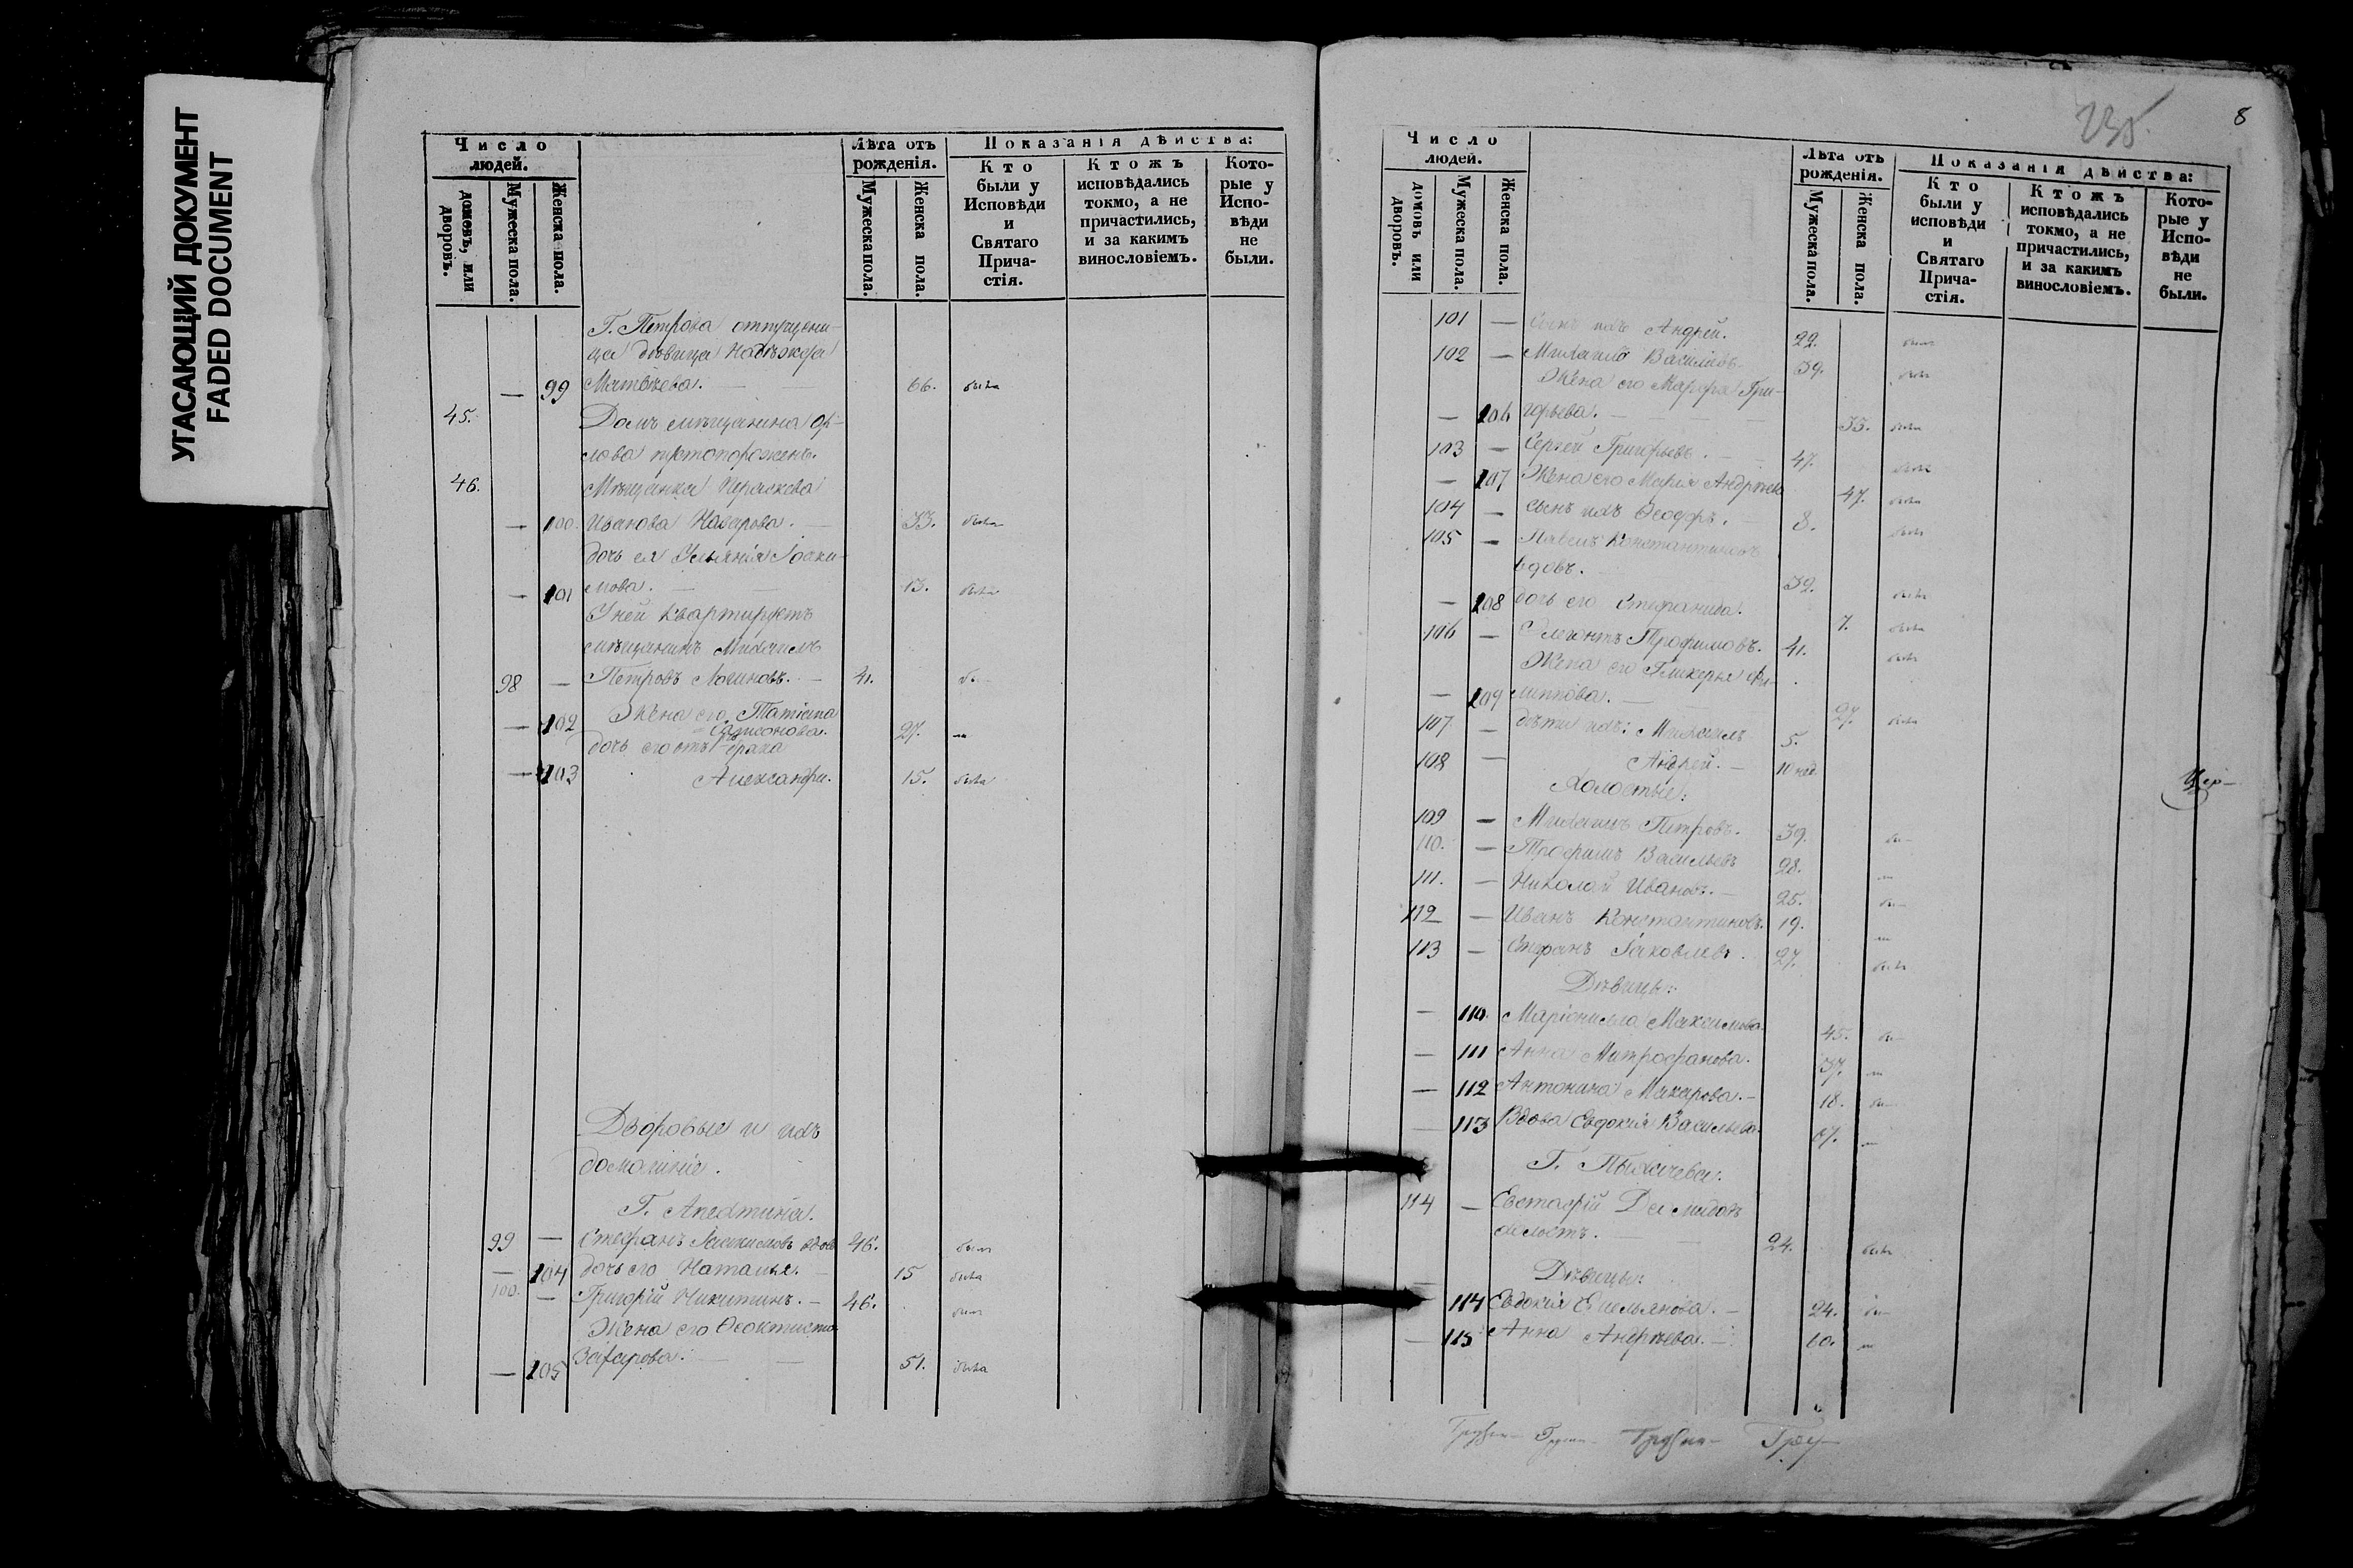 УГАСАЮЩИЙ ДОКУМЕНТ
FADED DOCUMENT
Число людей.
домовъ, или дворовъ.
Мужеска пола.
Женска пола.
Лѣта отъ рожденія.
Мужеска пола.
Женска пола.
Показанія дѣйства:
Кто были у Исповѣди и Святаго Прича-стія.
Ктожъ исповѣдались токмо, а не причастились, и за какимъ винословіемъ.
Кото-рые у Испо-вѣди не были.
Г. Петрова отпущени-
ца дѣвица Надежда
— 99 Матвѣева. — — 66. была
45. Домъ мѣщанина Ор-
лова пустопорожень.
46. Мѣщанка Параскева
— 100. Иванова Назарова. — 33. была
дочь ея Ульянія Іоаки-
— 101 мова. — — 13. была
У ней квартируетъ
мѣщанинъ Михаилъ
98 — Петровъ Логиновъ. — 41.
Жена его Татіана
— 102 Самсонова. 27.
дочь его отъ брака
— 103 Александра. 15. была
Дворовые и ихъ
домашніе.
Г. Апехтина.
99 — Стефанъ Іоакимовъ вдовъ 46. былъ
— 104 дочь его Наталья. — 15 была
100. — Григорій Никитинъ. — 46. былъ
Жена его Ѳеоктиста
— 105 Захарова. — — 51. была
235.
8
Число людей.
домовъ или дворовъ.
Мужеска пола.
Женска пола.
Лѣта отъ рожденія.
Мужеска пола.
Женска пола.
Показанія дѣйства:
Кто были у исповѣди и Святаго Прича-стія.
Ктожъ исповѣдались токмо, а не причастились, и за какимъ винословіемъ.
Кото-рые у Испо-вѣди не были.
101 — сынъ ихъ Андрей. 22. былъ
102 — Михаилъ Васильевъ. 39. былъ
Жена его Марфа Гри-
— 106 горьева. — 33. была
103 — Сергей Григорьевъ. — 47. былъ
— 107 Жена его Марія Андреева 47. была
104 — сынъ ихъ Ѳеодоръ. — 8. былъ
105 — Павелъ Константиновъ
вдовъ. 32. былъ
— 108 дочь его Стефанида. 7. была
106 — Трофимовъ. 41. былъ
Жена его Гликерья Фи-
— 109 липпова. — 27. была
107 — дѣти ихъ: Михаилъ 5.
108 — Андрей. — 10 нед.
Холостые:
109 — Михаилъ Петровъ. 39.
110. — Трофимъ Васильевъ 28.
111. — Николай Ивановъ. — 25.
112 — Иванъ Константиновъ. 19.
113 — Стефанъ Іаковлевъ. 27. былъ
Дѣвицы:
— 110. Маріонилла Максимова. 45.
— 111 Анна Митрофанова. 37.
— 112 Антонина Макарова. — 18.
— 113 Вдова Евдокія Васильева. 67.
Г. Пыхачева:
114 — Евстафій Демидовъ
холостъ. — 24. былъ
Дѣвицы:
— 114 Евдокія Емельянова. — 24.
— 115 Анна Андреева. — 60.